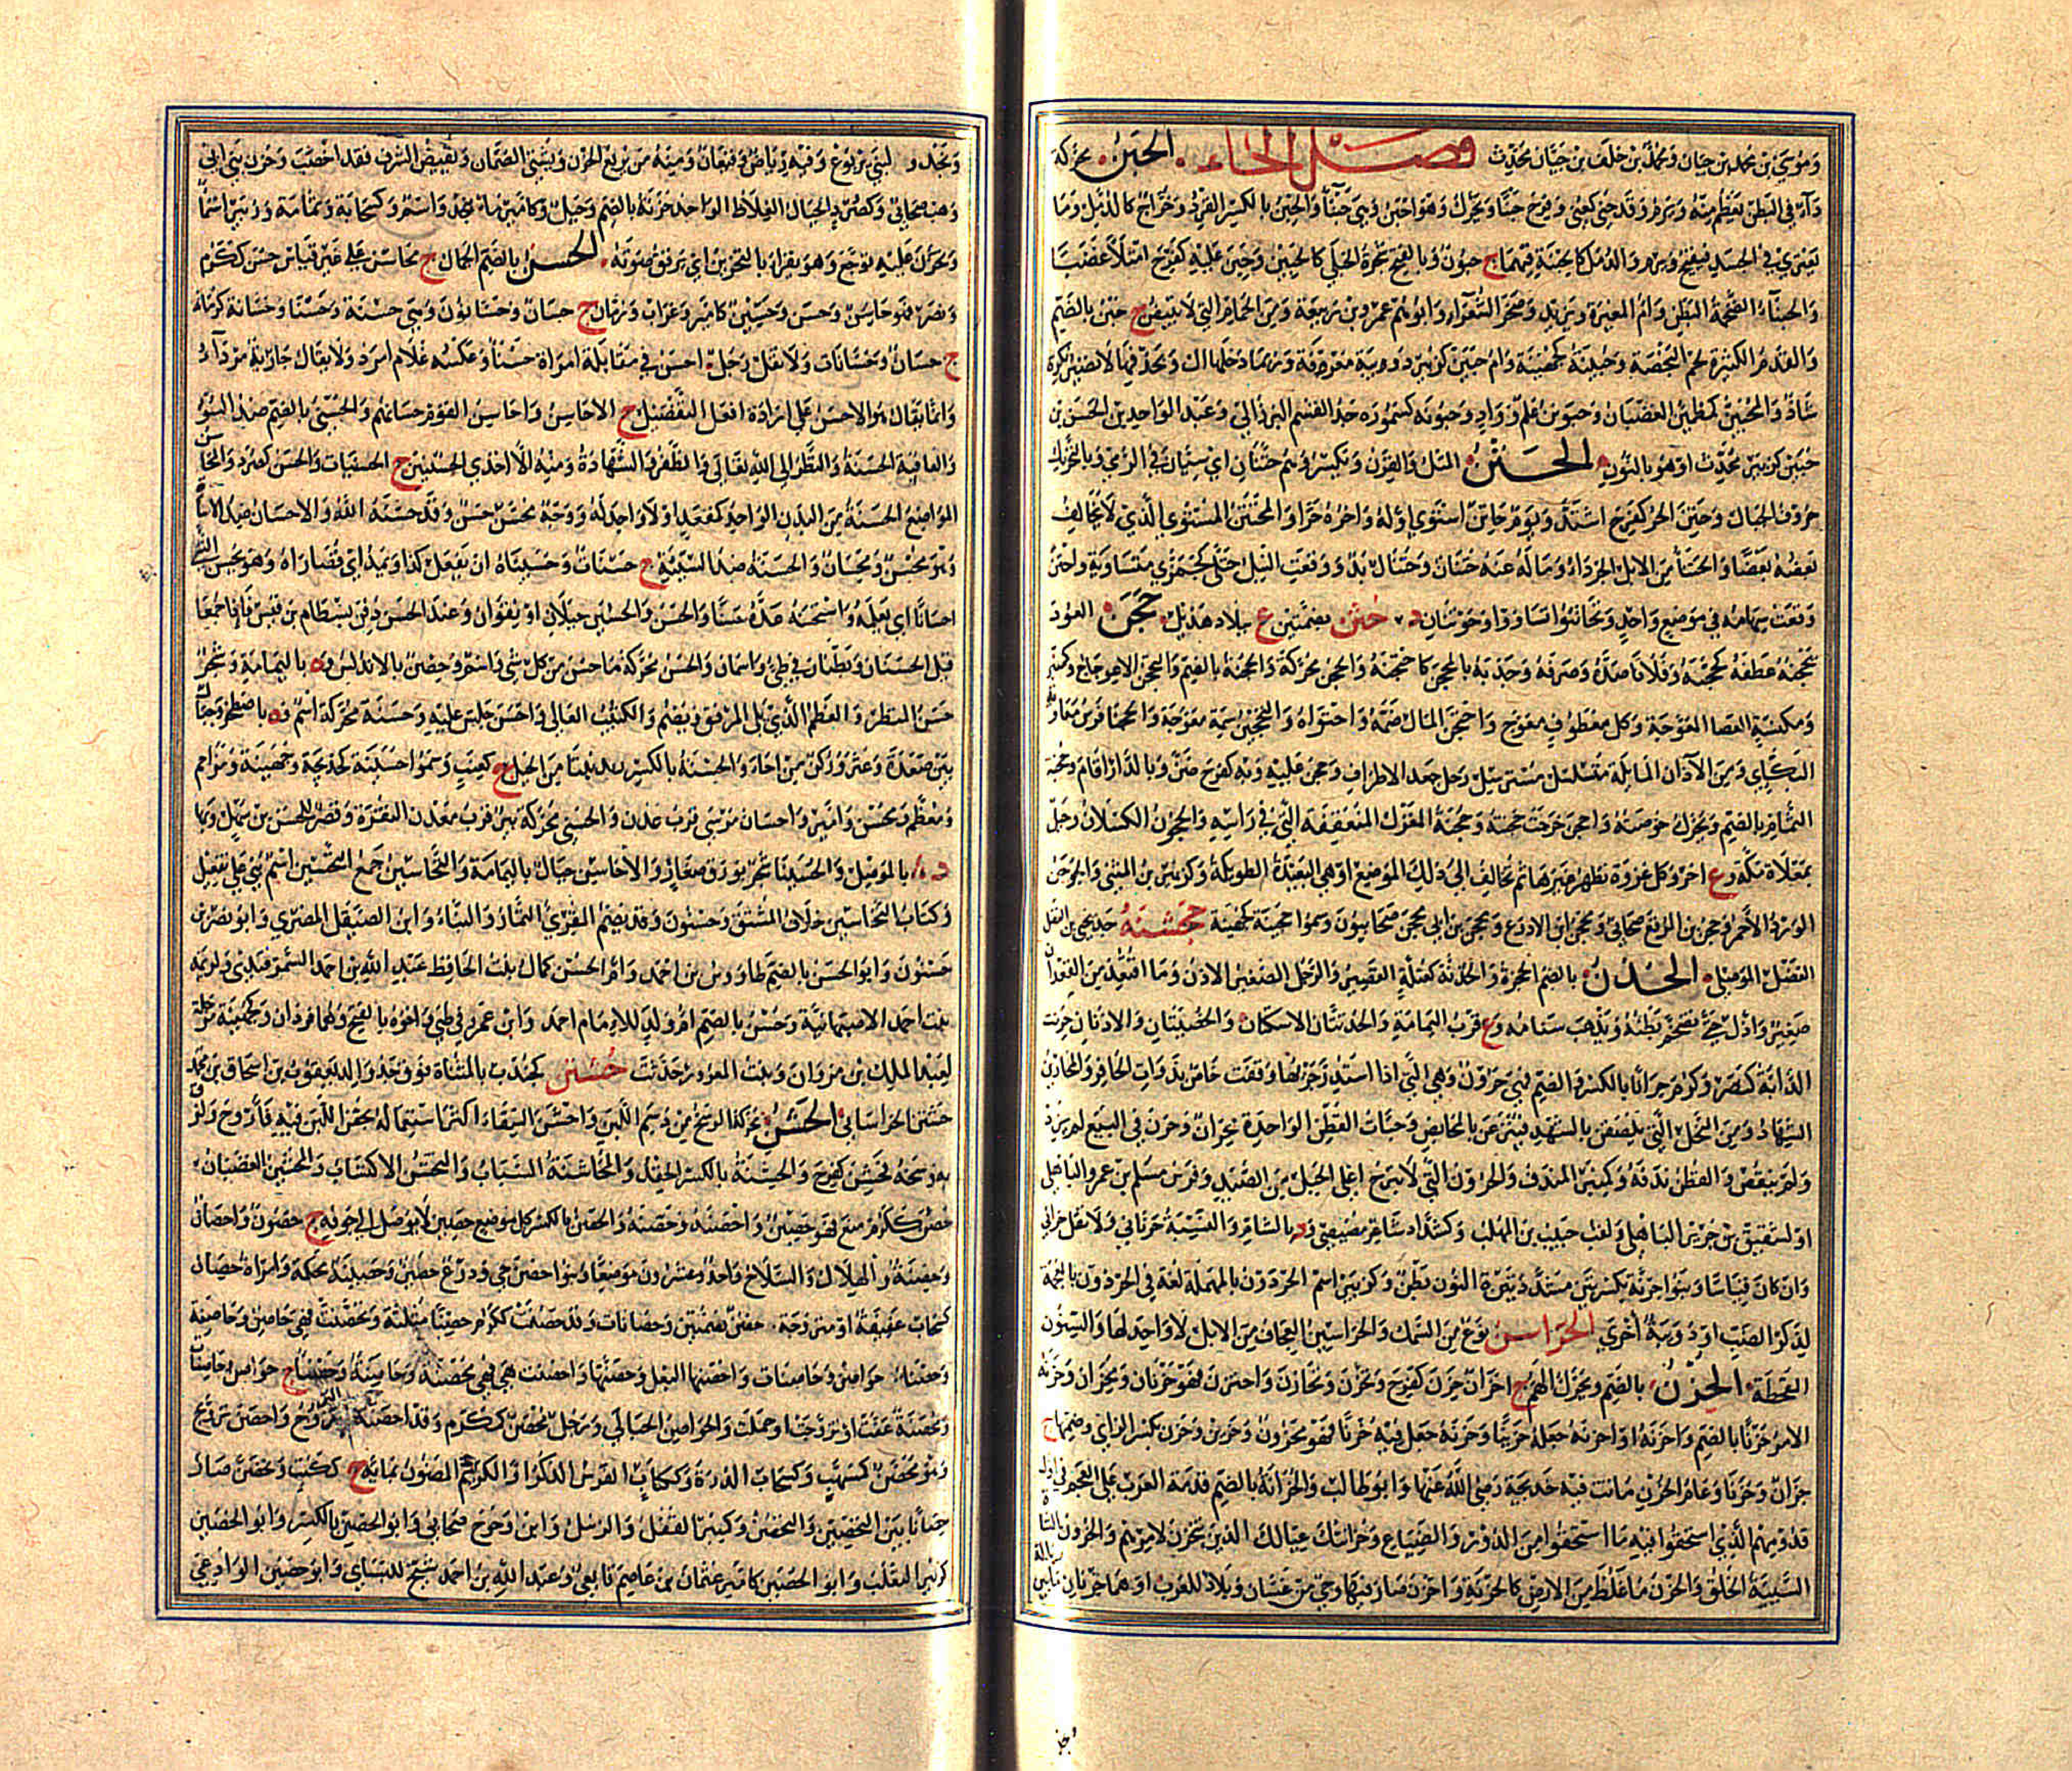 وموسى بن محمد بن جيان ومحمد بن خلف بن جيان محدث فصل الحاء الحبن محركة
داء في البطن يعظم منه ويرم وقد حبن كعني وفرح حبنا ويحرك وهو احبن وهي حبناء والحبن بالكسر القرد وخراج كالدمل وما
يعتري في الجسد فيقيح ويرم والدمل كالحبنة فيهما ج حبون وبالفتح شجرة الدفلى كالحبين وحبن عليه كفرح امتلأ غضبا
والحبناء الضخمة البطن وام المغيرة ويزيد وصخر الشعراء وابوهم عمرو بن ربيعة ومن الحمام التي لا تبيض ج حبن بالضم
والقدم الكثيرة لحم البخصة وحبينة كجهينة وام حبين كزبير دويبة معروفة وربما دخلها ال وتحذف فيها لا تصير نكرة
شاذ والمحبئن كمطمئن الغضبان وحبونن علم وواد وحبونة كسمورة جد القاسم البرزالي وعبد الواحد بن الحسن بن
حبين كزبير محدث او هو بالنون الحتن المثل والقرن ويكسر وهم حتنان اي سيان في الرمي وبالتحريك
حروف الجبال وحتن الحر كفرح اشتد ويوم حاتن استوى اوله واخره حرا والمحتتن المستوي الذي لا يخالف
بعضه بعضا والحتناء من الابل الجرداء وما له عنه حتنان وحتنال بد ووقعت النبل حتنى كجمزى متساوية واحتن
وقعت سهامه في موضع واحد وتحاتنوا تساووا وحوتنان د حثن بضمتين ع ببلاد هذيل حجن العود
يحجنه عطفه كحجنه وفلانا صده وصرفه وجذبه بالمحجن كاحتجنه والحجن محركة والحجنة بالضم والتحجن الاعوجاج وكمنبر
ومكنسة العصا المعوجة وكل معطوف معوج واحتجن المال ضمه واحتواه والتحجين سمة معوجة والحجناء فرس معاوية
البكائي ومن الآذان المائلة متسلسل مسترسل رجل جعد الاطراف وحجن عليه وبه كفرح ضن وبالدار اقام وحجنة
الثمام بالضم ويحرك خوصته واحجن خرجت حجنته وحجنة المغزل المنعقفة التي في راسه والحجون الكسلان وجبل
بمعلاة مكة وع اخر وكل غزوة تظهر غيرها ثم تخالف الى ذلك الموضع او هي البعيدة الطويلة وكزبير بن المثنى والحوجن
الورد الاحمر وحجن بن المرقع صحابي ومحجن ابن الادرع ومحجن بن ابي محجن صحابيون وسموا حجينة كجهينة حجشنة جد يحيى بن الفضل
الفضل الموصلي الحذن بالضم الحجزة والحذنة كعتلة القصير والرجل الصغير الاذن وما اقتعد من القعدان
صغيرا واذل حتى تضخم بطنه ويذهب سنامه وع قرب اليمامة والحذنتان الاسكتان والخصيتان والاذنان حرنت
الدابة كنصر وكرم حرانا بالكسر والضم فهي حرون وهي التي اذا استدر جريها وقفت خاص بذوات الحافر والمحارين
الشهاد ومن النحل التي تلصقن بالشهد فينزعن بالمحابض وحبات القطن الواحدة محران وحرن في البيع لم يزد
ولم ينقص والقطن ندفه وكمنبر المندف والحرون التي لا تبرح اعلى الجبل من الصيد وفرس مسلم بن عمرو الباهلي
او لشقيق بن جرير الباهلي ولقب حبيب بن المهلب وكشداد شاعر مصيصي ود بالشام والنسبة حرناني ولا تقل حراني
وان كان قياسا وبنو حرنة بكسرتين مشددة النون بطن وكزبير اسم الحرذون بالمهملة لغة في الحرذون بالمعجمة
لذكر الضب او دويبة اخرى الحراسين نوع من السمك والحراسين العجاف من الابل لا واحد لها والسنون
القحطة الحزن بالضم ويحرك الهم ج احزان حزن كفرح وتحزن وتحازن واحتزن فهو حزنان ومحزان وحزنه
الامر حزنا بالضم واحزنه او احزنه جعله حزينا وحزنه جعل فيه حزنا فهو محزون وحزين وحزن بكسر الزاي وضمها ج
حزان وحزنا وعام الحزن ماتت فيه خديجة رضي الله عنها وابو طالب والحزانة بالضم قدمة العرب على العجم في اول
قدومهم الذي استحقوا فيه ما استحقوا من الدور والضياع وحزانتك عيالك الذين تتحزن لامرهم والحزون الشاة
السيئة الخلق والحزن ما غلظ من الارض كالحزنة واحزن صار فيها وحي من غسان وبلاد للعرب او هما حزنان ما بين زبالة
ونجد و لبني يربوع وفيه رياض وقيعان ومنه من تربع الحزن وتشتى الصمان وتقيض الشرف فقد اخصب وحزن بن ابي
وهب صحابي وكصرد الجبال الغلاظ الواحد حزنة بالضم وجبل وكامير ماء بنجد واسم وكسحابة وثمامة وزبير اسماء
وتحزن عليه توجع وهو يقرأ بالتحزين اي يرقق صوته الحسن بالضم الجمال ج محاسن على غير قياس حسن ككرم
ونصر فهو حاسن وحسن وحسين كامير وغراب ورمان ج حسان وحسانون وهي حسنة وحسناء وحسانة كرمانة
ج حسان وحسانات ولا تقل رجل احسن في مقابلة امراة حسناء وعكسه غلام امرد ولا يقال جارية مرداء
وانما يقال هو الاحسن على ارادة افعل التفضيل ج الاحاسن واحاسن القوم حسانهم والحسنى بالضم ضد السوأى
والعاقبة الحسنة والنظر الى الله تعالى والظفر والشهادة ومنه الا احدى الحسنيين ج الحسنيات والحسن كصرد والمحاسن
المواضع الحسنة من البدن الواحد كمقعد او لا واحد له ووجه محسن حسن وقد حسنه الله والاحسان ضد الاساءة
وهو محسن ومحسان والحسنة ضد السيئة ج حسنات وحسيناه ان يفعل كذا ويمد اي قصاراه وهو يحسن الشيء
احسانا اي يعلمه واستحسنه عده حسنا والحسن والحسين جبلان او نقوان وعند الحسن دفن بسطام بن قيس فاذا جمعا
قيل الحسنان وبطنان في طيئ واسمان والحسن محركة ما حسن من كل شيء واسم وحصن بالاندلس وة باليمامة وشجر
حسن المنظر والعظم الذي يلي المرفق ويضم والكثيب العالي واحسن جلس عليه وحسنة محركة اسم وة باصطخر وجبال
بين صعدة وعثر وركن من اجاء والحسنة بالكسر ريد ينتا من الجبل ج كعنب وسموا حسينة كخديجة وجهينة ومزاحم
ومعظم ومحسن وامير واحسان مرسى قرب عدن والحسنى محركة بئر قرب معدن النقرة وقصر للحسن بن سهل وبها
د بالموصل والحسينا شجر بورق صغار والاحاسن جبال باليمامة والتحاسين جمع التحسين اسم بني على تفعيل
وكتاب التحاسين خلاف المشق وحسنون وقد يضم المقرئ التمار والبناء وابن الصيقل المصري وابو نصر بن
حسنون وابو الحسن بالضم طاووس بن احمد وام الحسن كمال بنت الحافظ عبد الله بن احمد السمرقندي وكريمة
بنت احمد الاصبهانية وحسن بالضم ام ولد للامام احمد وابن عمرو في طيئ واخوه بالفتح وهما فردان وكجهينة مرحلة
لعبد الملك بن مروان وبنت المعرور حدثت حشتن كجندب بالمثناة فوق جد والد يعقوب بن اسحاق بن محمد
حشتن الخراساني الحشن محركة الوسخ من دسم اللبن واحشن السقاء اكثر استعماله بحقن اللبن فيه فاروح ولزق
به وسخه فحشن كفرح والحشنة بالكسر الحقد والمحاشنة السباب والتحشن الاكتساب والمحشئن الغضبان
حصن ككرم منع فهو حصين واحصنه وحصنه والحصن بالكسر كل موضع حصين لا يوصل الى جوفه ج حصون واحصان
وحصنة والهلال والسلاح واحد وعشرون موضعا وبنو حصن حي ودرع حصين وحصينة محكمة وامراة حصان
كسحاب عفيفة او متزوجة حصن بضمتين وحصانات وقد حصنت ككرم حصنا مثلثة وتحصنت فهي حاصن وحاصنة
وحصناء حواصن وحاصنات واحصنها البعل وحصنها واحصنت هي فهي محصنة وحاصنة وحصناء ج حواصن وحاصنات
ومحصنة عفت او تزوجت او حملت والحواصن الحبالى ورجل محصن كمكرم وقد احصنه التزوج واحصن تزوج
وهو محصن كمسهب وكسحاب الدرة وككتاب الفرس الذكر او الكريم المضنون بمائه ج ككتب وتحصن صار
حصانا بين التحصين والتحصن وكمنبر القفل والزبيل وابن وحوح صحابي وابو الحصن بالكسر وابو الحصين
كزبير الثعلب وابو الحصين كامير عثمان بن عاصم تابعي وعبد الله بن احمد شيخ للنسائي وابو حصين الوادعي